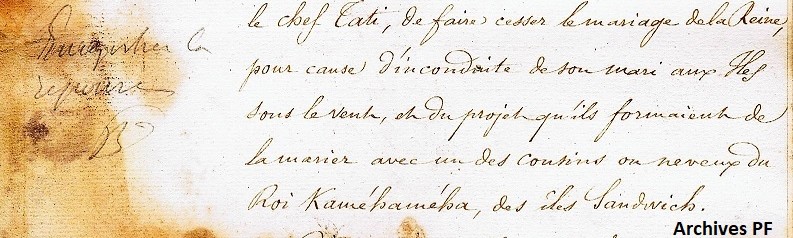 le chef Tati, de faire cesser le mariage de la Reine,
pour cause d'inconduite de son mari aux Iles
sous le vent, et du projet qu'ils formaient de
la marier avec un des cousins ou neveux du
Roi Kaméhaméha, des îles Sandwich.
la
Archives PF